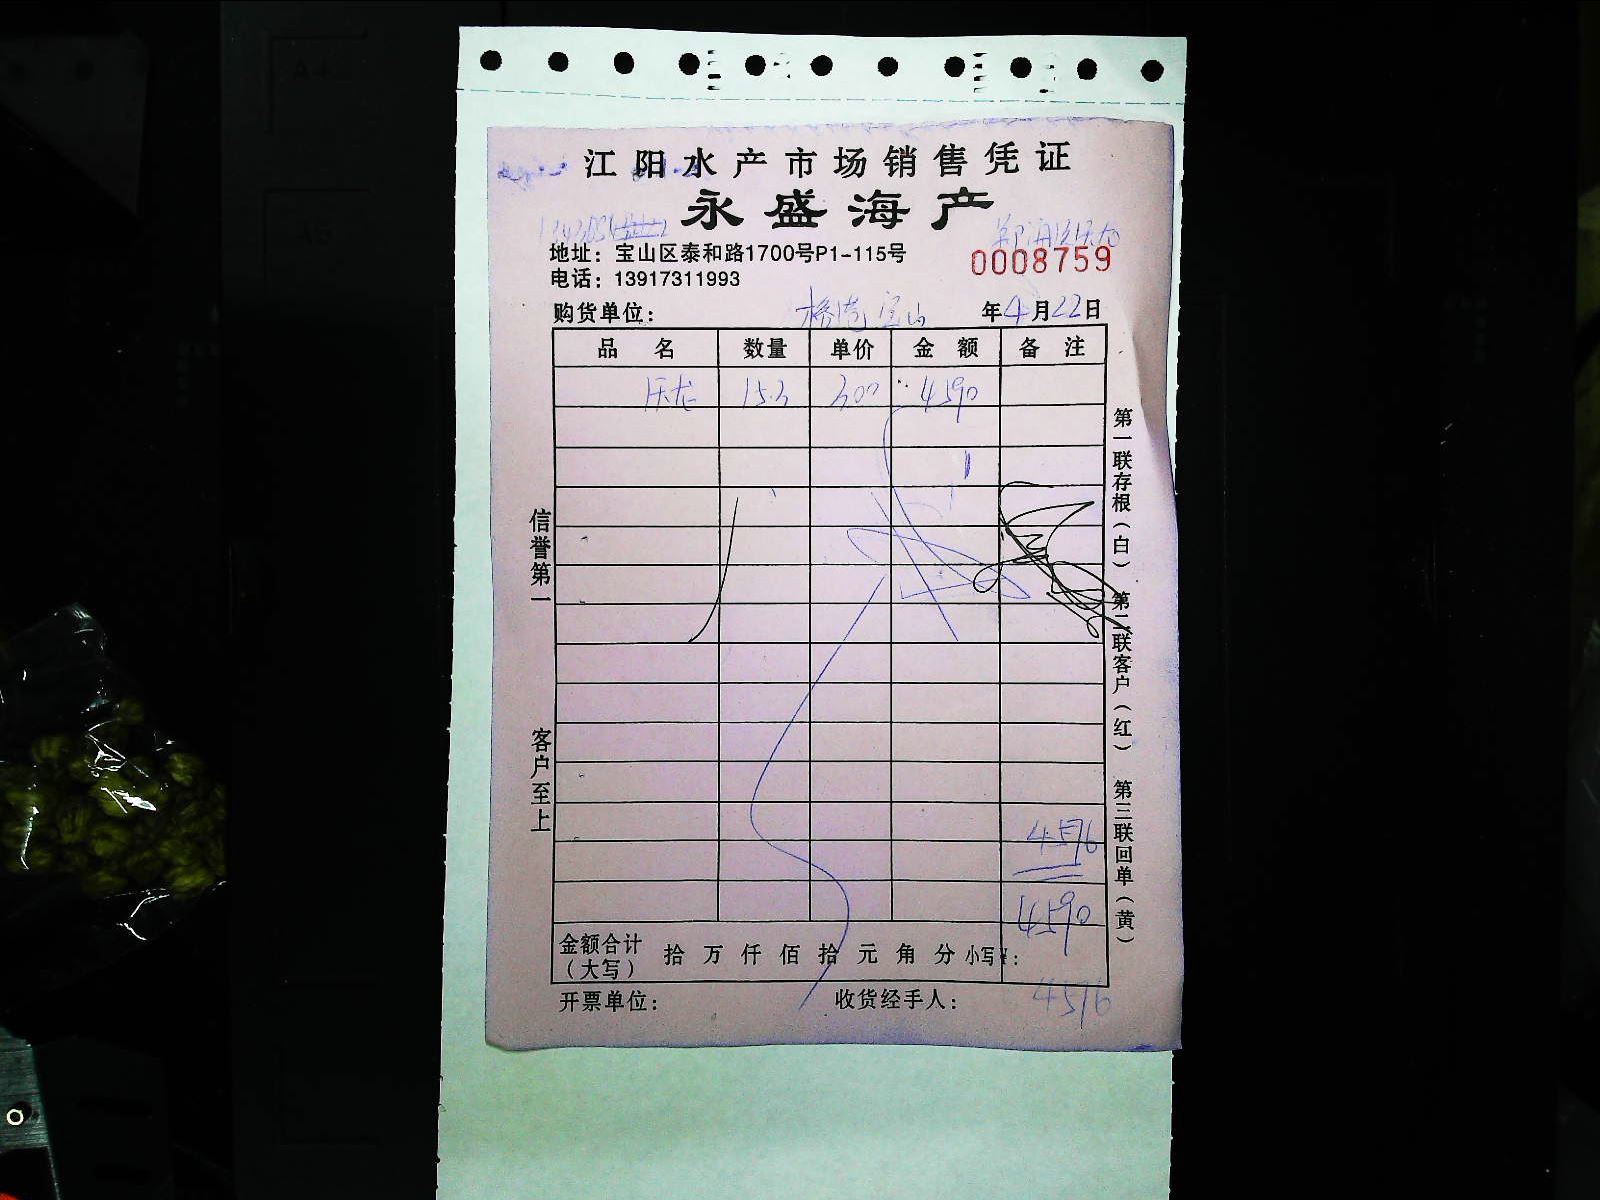 江阳水产市场销售凭证
永盛海产
地址：宝山区泰和路1700号P1-115号
电话：13917311993
0008759
购货单位： 杨浩宝山 年4月22日
品名 数量 单价 金额 备注
15.3 300 4590
信誉第一
客户至上
第一联存根（白） 第二联客户（红） 第三联回单（黄）
4576
4590
金额合计（大写） 拾 万 仟 佰 拾 元 角 分 小写¥：
开票单位： 收货经手人： 4576